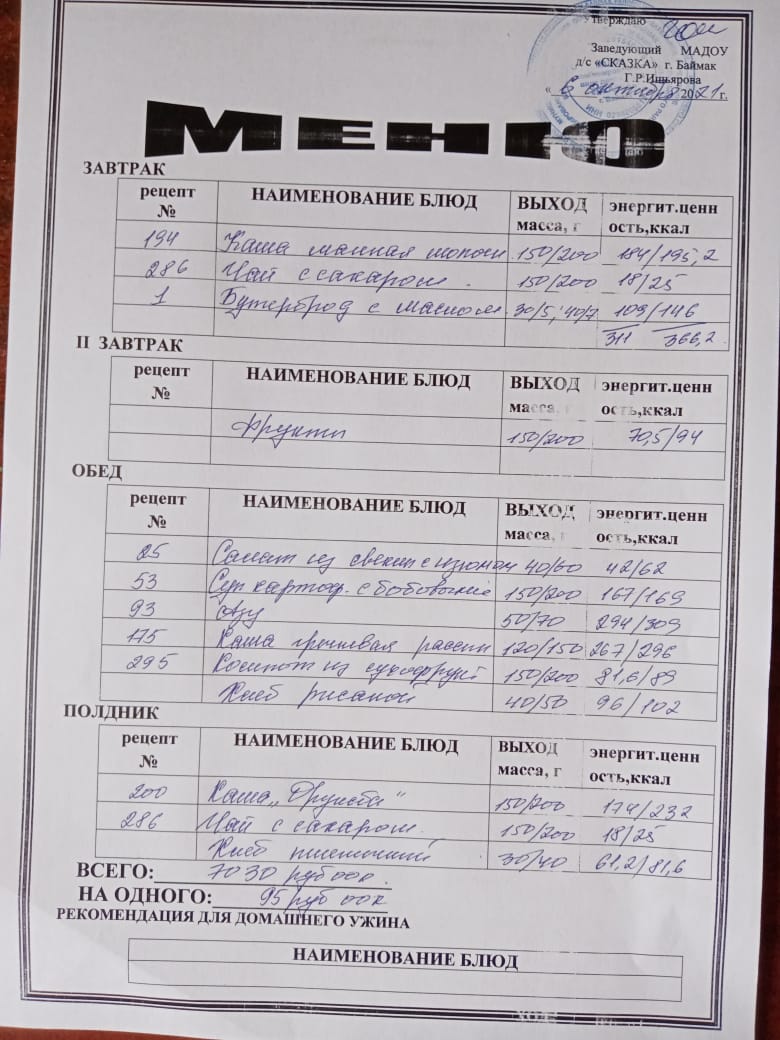 Утверждаю
Заведующий МАДОУ
д/с «СКАЗКА» г. Баймак
Г.Р.Ишьярова
« 6 октября 2021 г.
МЕНЮ
ЗАВТРАК
рецепт № НАИМЕНОВАНИЕ БЛЮД ВЫХОД масса, г энергит.ценн ость,ккал
194 Каша манная молочн 150/200 184/195,2
286 Чай с сахаром. 150/200 18/25
1 Бутерброд с маслом 30/5; 40/7 109/146
311 366,2
II ЗАВТРАК
рецепт № НАИМЕНОВАНИЕ БЛЮД ВЫХОД масса, г энергит.ценн ость,ккал
Фрукты 150/200 70,5/94
ОБЕД
рецепт № НАИМЕНОВАНИЕ БЛЮД ВЫХОД масса, г энергит.ценн ость,ккал
25 Салат из свеклы с изюмом 40/60 42/62
53 Суп картоф. с бобовыми 150/200 167/169
93 Азу 50/70 294/309
175 Каша гречневая рассып 120/150 267/296
295 Компот из сухофрукт 150/200 81,6/89
Хлеб ржаной 40/50 96/102
ПОЛДНИК
рецепт № НАИМЕНОВАНИЕ БЛЮД ВЫХОД масса, г энергит.ценн ость,ккал
200 Каша „Дружба“ 150/200 174/232
286 Чай с сахаром. 150/200 18/25
Хлеб пшеничный 30/40 61,2/81,6
ВСЕГО: 7030 руб 00к
НА ОДНОГО: 95 руб 00к
РЕКОМЕНДАЦИЯ ДЛЯ ДОМАШНЕГО УЖИНА
НАИМЕНОВАНИЕ БЛЮД